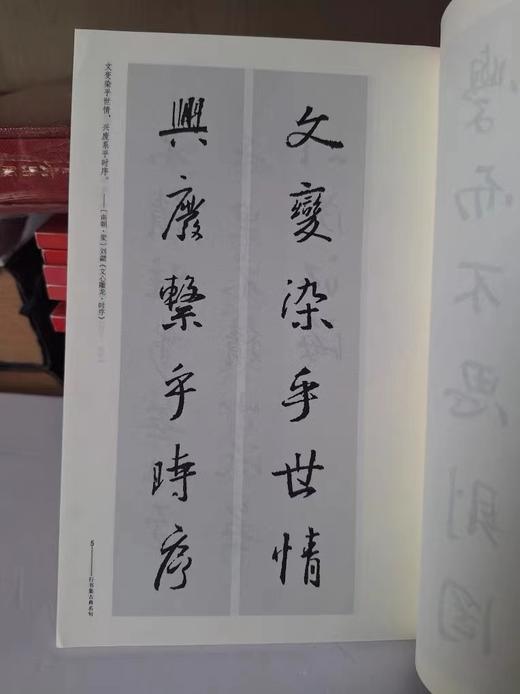 文變染乎世情
興廢繫乎時序
文变染乎世情，兴废系乎时序。
——［南朝·梁］刘勰《文心雕龙·时序》
5——行书集古典名句
而不思则罔